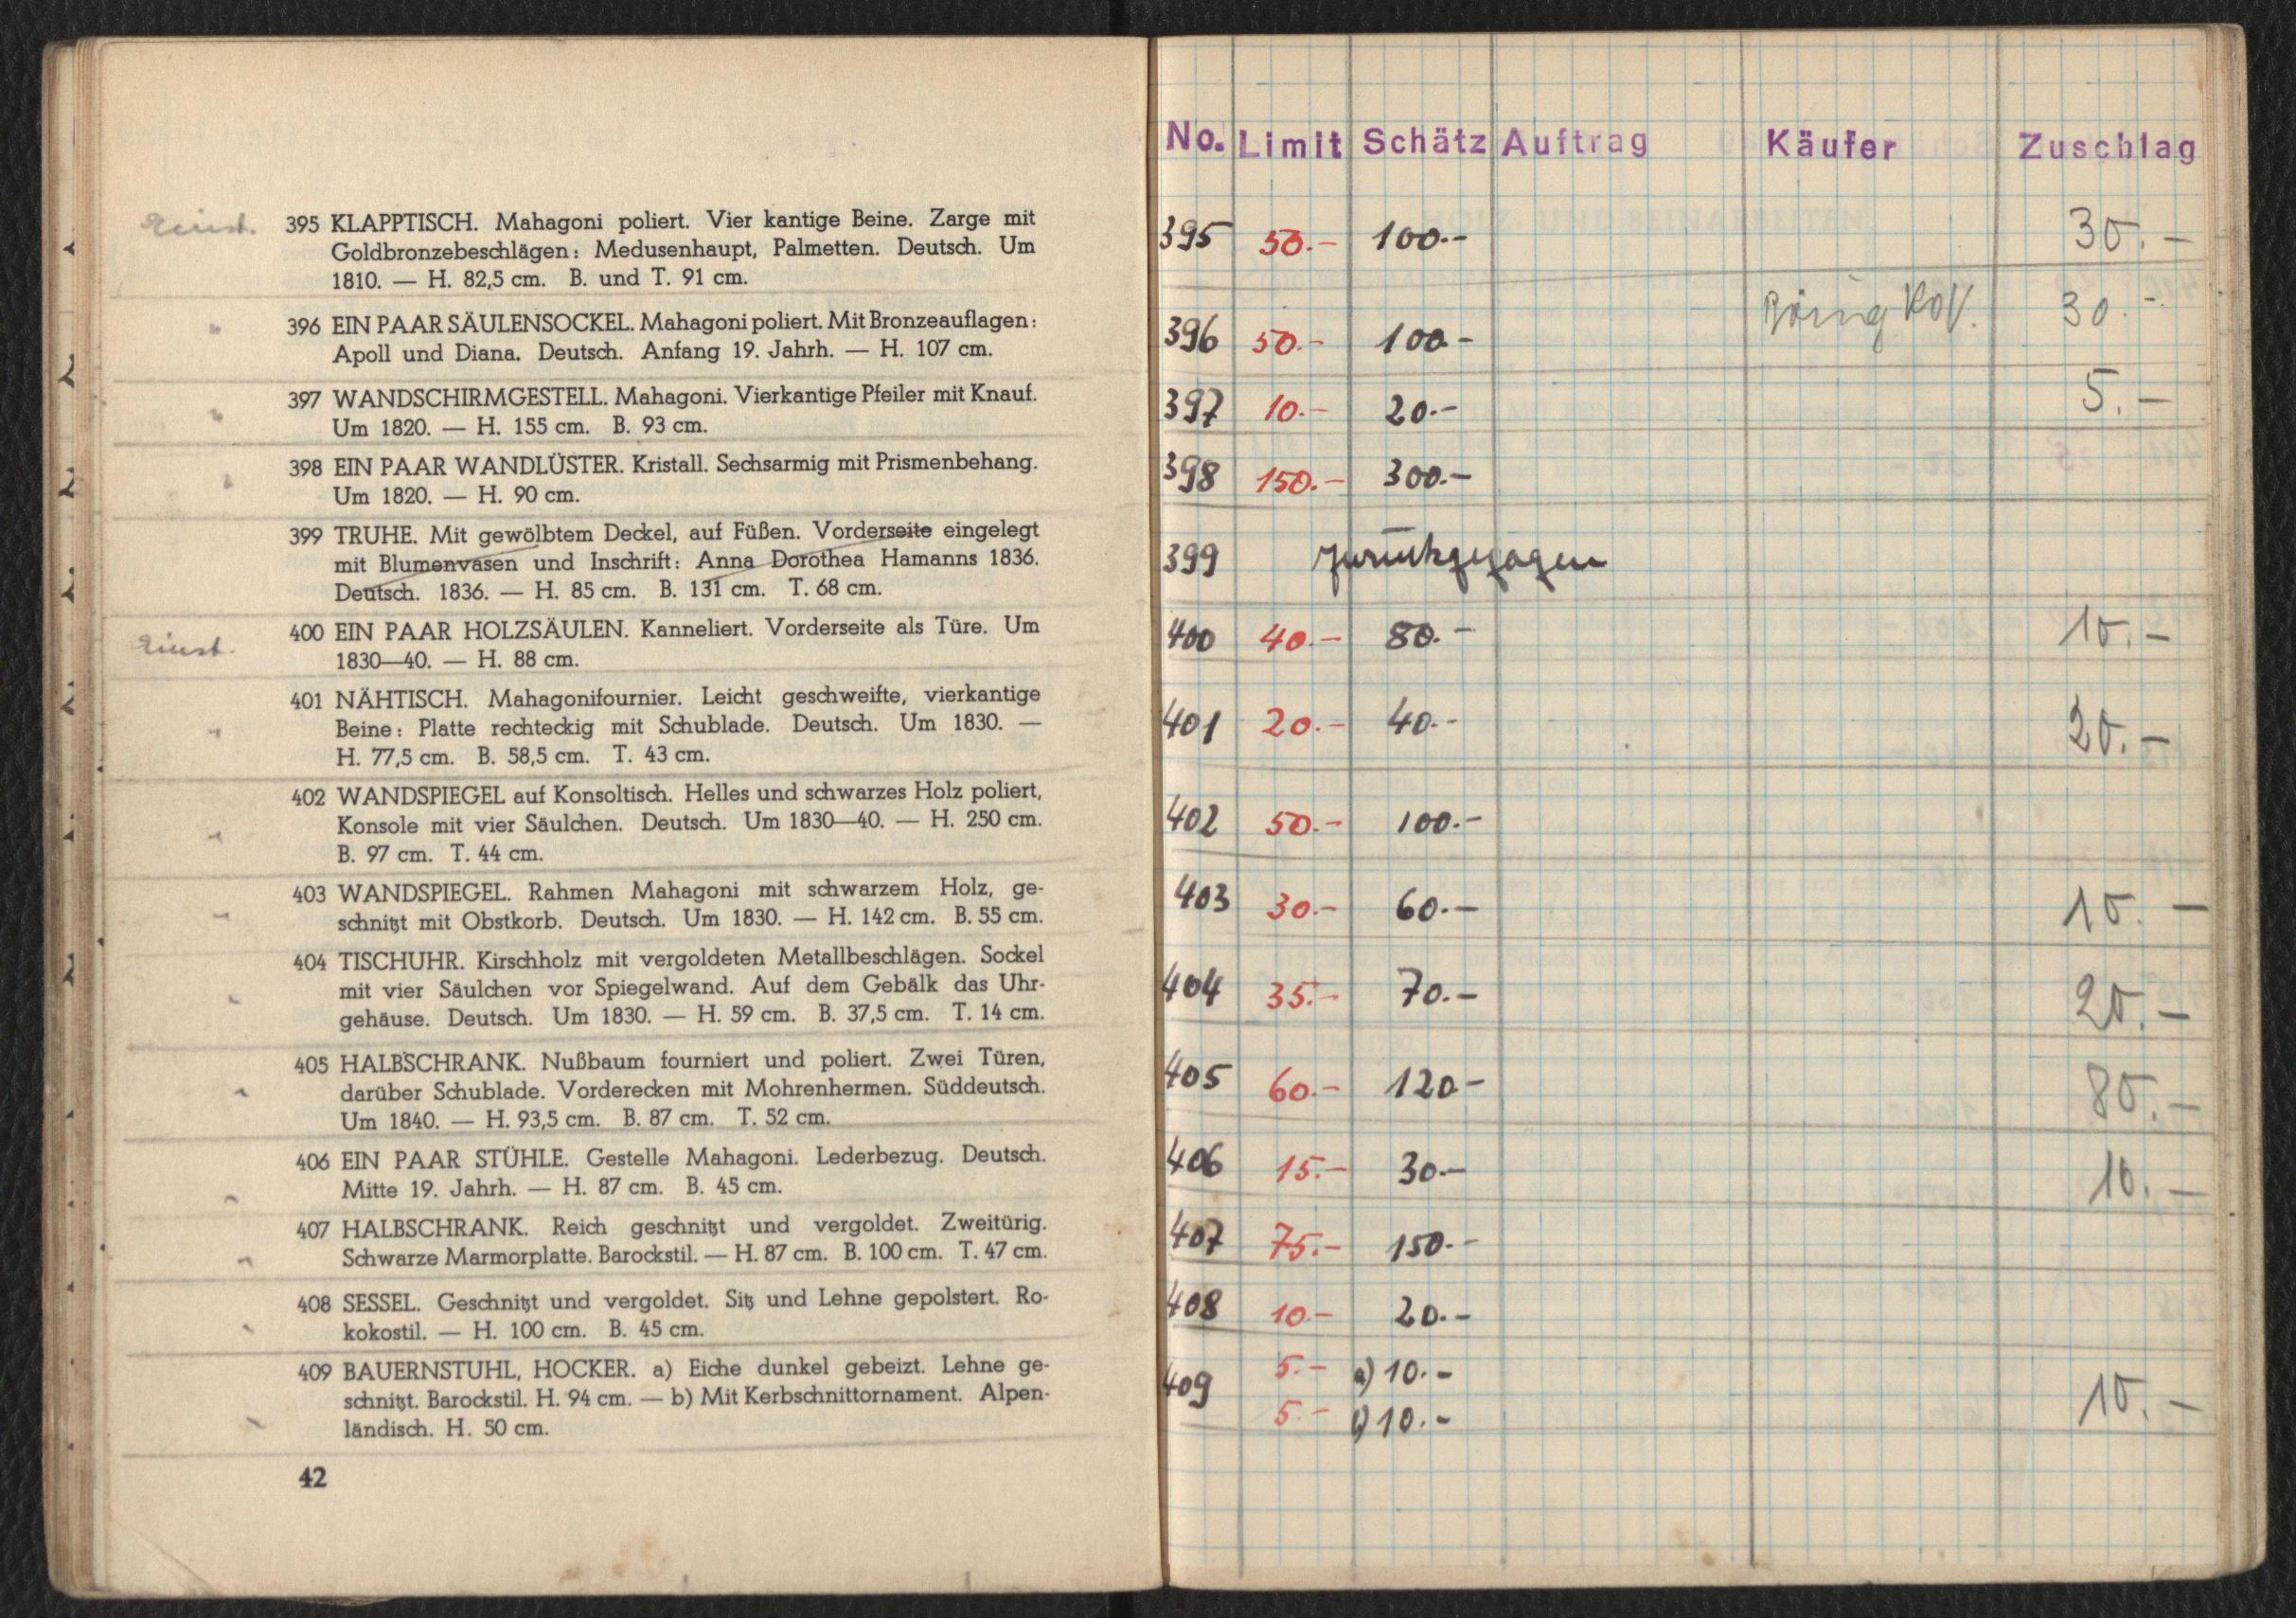 395 KLAPPTISCH. Mahagoni poliert. Vier kantige Beine. Zarge mit
Goldbronzebeschlägen: Medusenhaupt, Palmetten. Deutsch. Um
1810. — H. 82,5 cm. B. und T. 91 cm.
396 EIN PAAR SÄULENSOCKEL. Mahagoni poliert. Mit Bronzeauflagen:
Apoll und Diana. Deutsch. Anfang 19. Jahrh. — H. 107 cm.
397 WANDSCHIRMGESTELL. Mahagoni. Vierkantige Pfeiler mit Knauf.
Um 1820. — H. 155 cm. B. 93 cm.
398 EIN PAAR WANDLÜSTER. Kristall. Sechsarmig mit Prismenbehang.
Um 1820. — H. 90 cm.
399 TRUHE. Mit gewölbtem Deckel, auf Füßen. Vorderseite eingelegt
mit Blumenvasen und Inschrift: Anna Dorothea Hamanns 1836.
Deutsch. 1836. — H. 85 cm. B. 131 cm. T. 68 cm.
400 EIN PAAR HOLZSÄULEN. Kanneliert. Vorderseite als Türe. Um
1830—40. — H. 88 cm.
401 NÄHTISCH. Mahagonifournier. Leicht geschweifte, vierkantige
Beine: Platte rechteckig mit Schublade. Deutsch. Um 1830. —
H. 77,5 cm. B. 58,5 cm. T. 43 cm.
402 WANDSPIEGEL auf Konsoltisch. Helles und schwarzes Holz poliert,
Konsole mit vier Säulchen. Deutsch. Um 1830—40. — H. 250 cm.
B. 97 cm. T. 44 cm.
403 WANDSPIEGEL. Rahmen Mahagoni mit schwarzem Holz, ge-
schnitzt mit Obstkorb. Deutsch. Um 1830. — H. 142 cm. B. 55 cm.
404 TISCHUHR. Kirschholz mit vergoldeten Metallbeschlägen. Sockel
mit vier Säulchen vor Spiegelwand. Auf dem Gebälk das Uhr-
gehäuse. Deutsch. Um 1830. — H. 59 cm. B. 37,5 cm. T. 14 cm.
405 HALBSCHRANK. Nußbaum fourniert und poliert. Zwei Türen,
darüber Schublade. Vorderecken mit Mohrenhermen. Süddeutsch.
Um 1840. — H. 93,5 cm. B. 87 cm. T. 52 cm.
406 EIN PAAR STÜHLE. Gestelle Mahagoni. Lederbezug. Deutsch.
Mitte 19. Jahrh. — H. 87 cm. B. 45 cm.
407 HALBSCHRANK. Reich geschnitzt und vergoldet. Zweitürig.
Schwarze Marmorplatte. Barockstil. — H. 87 cm. B. 100 cm. T. 47 cm.
408 SESSEL. Geschnitzt und vergoldet. Sitz und Lehne gepolstert. Ro-
kokostil. — H. 100 cm. B. 45 cm.
409 BAUERNSTUHL, HOCKER. a) Eiche dunkel gebeizt. Lehne ge-
schnitzt. Barockstil. H. 94 cm. — b) Mit Kerbschnittornament. Alpen-
ländisch. H. 50 cm.
42
No. Limit Schätz Auftrag Käufer Zuschlag
395 50.- 100.- 30.-
396 50.- 100- 30.-
397 10.- 20.- 5.-
398 150.- 300.-
399 zurückgezogen
400 40.- 80.- 10.-
401 20.- 40.- 20.-
402 50.- 100.-
403 30.- 60.- 10.-
404 35.- 70.- 20.-
405 60.- 120- 80.-
406 15.- 30.- 10.-
407 75.- 150.-
408 10.- 20.-
409 5.- a) 10.- 10.-
5.- b) 10.-